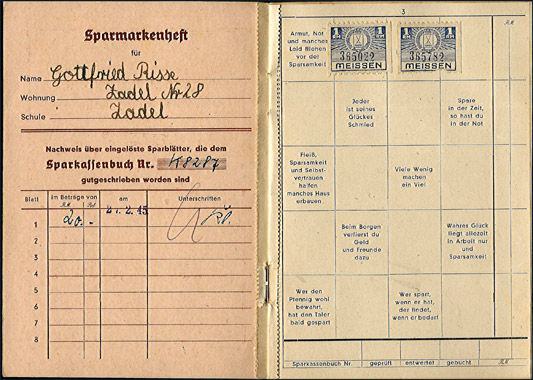 Sparmarkenheft
für
Name Gottfried Risse
Wohnung Zadel Nr 28
Schule Zadel
Nachweis über eingelöste Sparblätter, die dem
Sparkassenbuch Nr. K8287
gutgeschrieben worden sind
Blatt im Betrage von am Unterschriften
RM Rpf
1 20.- 2.45
2
3
4
5
6
7
8
3
RM
Armut, Not
und manches
Leid fliehen
vor der
Sparsamkeit
1 RM 1 RM
365022
MEISSEN
1 RM 1 RM
365782
MEISSEN
Jeder
ist seines
Glückes
Schmied
Spare
in der Zeit,
so hast du
in der Not
Fleiß,
Sparsamkeit
und Selbst-
vertrauen
halfen
manches Haus
erbauen.
Viele Wenig
machen
ein Viel
Beim Borgen
verlierst du
Geld
und Freunde
dazu
Wahres Glück
liegt allezeit
in Arbeit nur
und
Sparsamkeit
Wer den
Pfennig wohl
bewahrt,
hat den Taler
bald gespart
Wer spart,
wenn er hat,
der findet,
wenn er bedarf
Sparkassenbuch Nr. geprüft entwertet gebucht RM